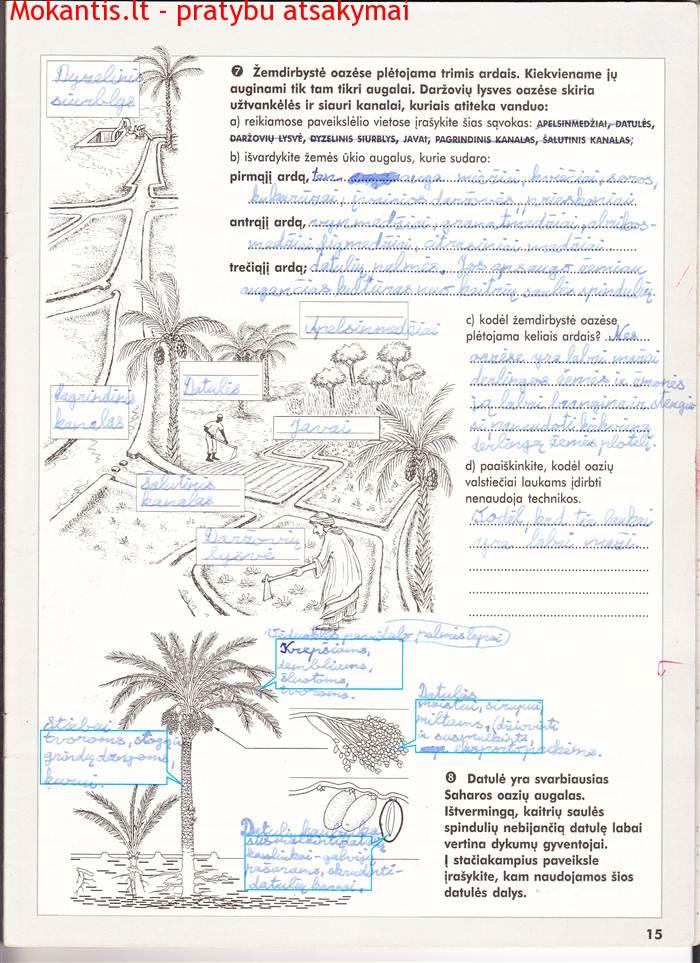 Mokantis.lt - pratybu atsakymai
Dyzelinis
siurblys
7 Žemdirbystė oazėse plėtojama trimis ardais. Kiekviename jų
auginami tik tam tikri augalai. Daržovių lysves oazėse skiria
užtvankėlės ir siauri kanalai, kuriais atiteka vanduo:
a) reikiamose paveikslėlio vietose įrašykite šias sąvokas: APELSINMEDŽIAI, DATULĖS,
DARŽOVIŲ LYSVĖ, DYZELINIS SIURBLYS, JAVAI, PAGRINDINIS KANALAS, ŠALUTINIS KANALAS;
b) išvardykite žemės ūkio augalus, kurie sudaro:
pirmąjį ardą, ten auga miežiai, kviečiai, soros,
kukurūzai, įvairios daržovės, prieskoniai
antrąjį ardą, vynmedžiai, granatmedžiai, abrikos-
medžiai, figmedžiai, citrusiniai medžiai
trečiąjį ardą; datulių palmės. Jos apsaugo žemiau
augančias kultūras nuo kaitrių saulės spindulių.
Apelsinmedžiai
c) kodėl žemdirbystė oazėse
plėtojama keliais ardais? Nes
oazėse yra labai mažai
derlingos žemės ir žmonės
ją labai brangina ir stengia
si panaudoti kiekvieną
derlingą žemės plotelį.
Datulės
Pagrindinis
kanalas
Javai
d) paaiškinkite, kodėl oazių
valstiečiai laukams įdirbti
nenaudoja technikos.
Todėl, kad tie laukai
yra labai maži.
Šalutinis
kanalas
Daržovių
lysvė
Vėduoklės pavidalo palmės lapai
Krepšiams,
dembliams,
šluotoms,
tvoroms.
Datulės
maistui, sirupui,
miltams, (džiovinti
ir susmulkinti
eksporto prekėms.
Stiebai
tvoroms, stogų ir
grindų dangoms,
kurui.
Datulių kauliukai
susmulkinti datulių
kauliukai - galvijų
pašarams, skrudinti -
datulių kavai.
8 Datulė yra svarbiausias
Saharos oazių augalas.
Ištvermingą, kaitrių saulės
spindulių nebijančią datulę labai
vertina dykumų gyventojai.
Į stačiakampius paveiksle
įrašykite, kam naudojamos šios
datulės dalys.
15